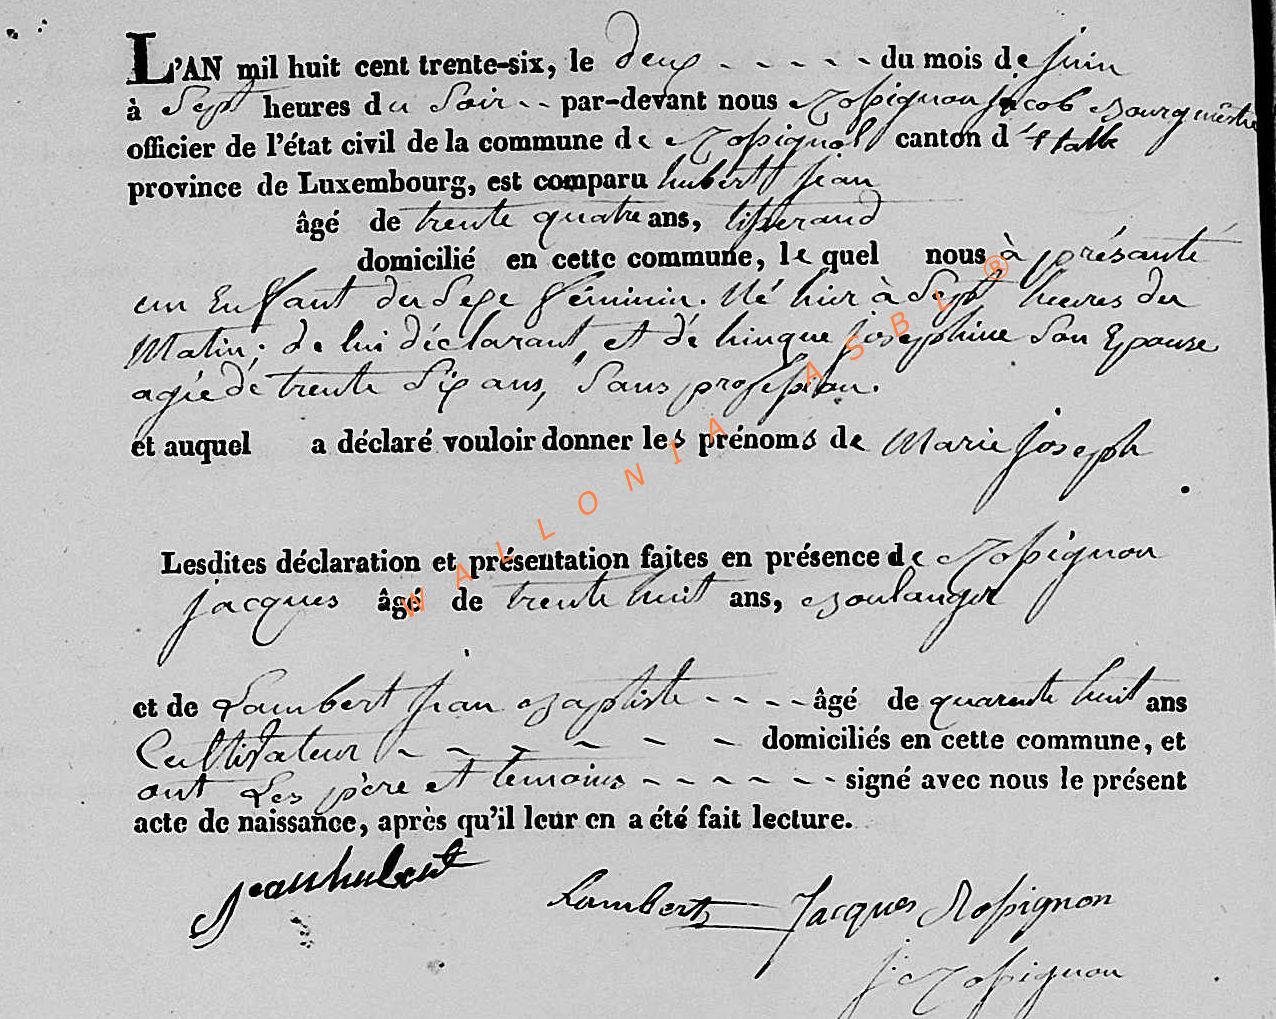 L'AN mil huit cent trente-six, le deux - - - - - du mois de juin
à Sept heures du Soir - - par-devant nous Rossignon jacob Bourgmêstre
officier de l'état civil de la commune de Rossignol canton d'Etalle
province de Luxembourg, est comparu hubert jean
âgé de trente quatre ans, tisserand
domicilié en cette commune, le quel nous à présanté
un Enfant du Sexe féminin. Né hier à Sept heures du
Matin; de lui déclarant, et de hinque josephine Son Epouse
agée dé trente Six ans, Sans profession.
et auquel a déclaré vouloir donner les prénoms de Marie joseph
Lesdites déclaration et présentation faites en présence de Rossignon
jacques âgé de trente huit ans, Boulanger
et de Lambert jean Baptiste - - - - âgé de quarente huit ans
Cultivateur - - - - - - domiciliés en cette commune, et
ont Les père et temoins - - - - - - signé avec nous le présent
acte de naissance, après qu'il leur en a été fait lecture.
Jean hubert
Lambert Jacques Rossignon
j. Rossignon
WALLONIA ASBL ®